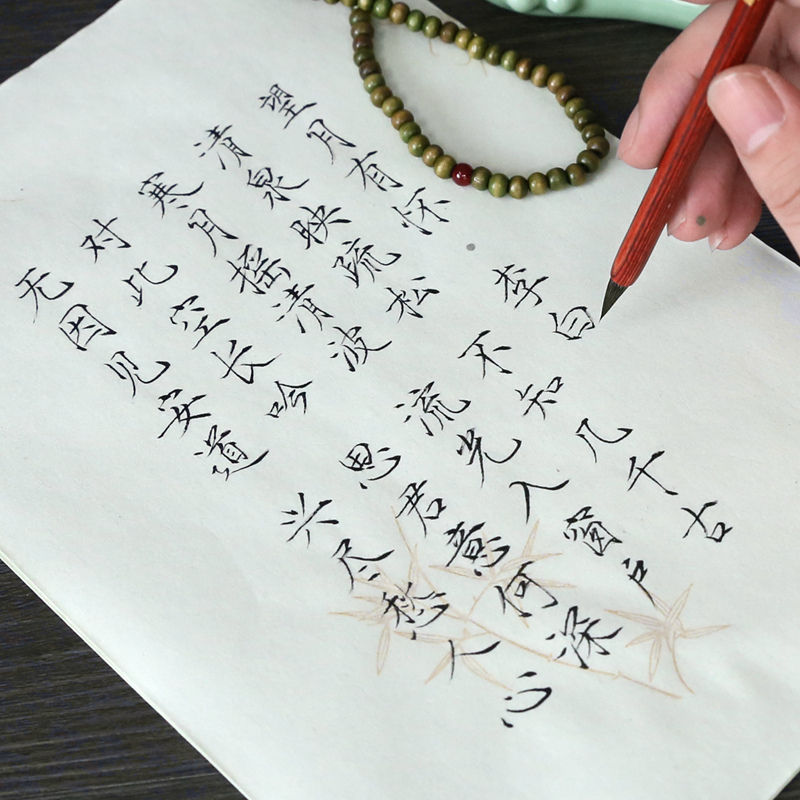 望月有怀 李白
清泉映疏松 不知几千古
寒月摇清波 流光入窗户
对此空长吟 思君意何深
无因见安道 兴尽愁人心